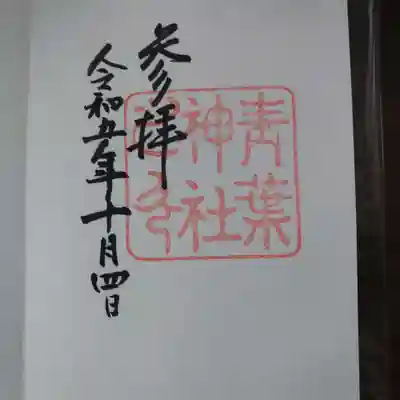 青葉
神社
参拝
令和五年十月四日